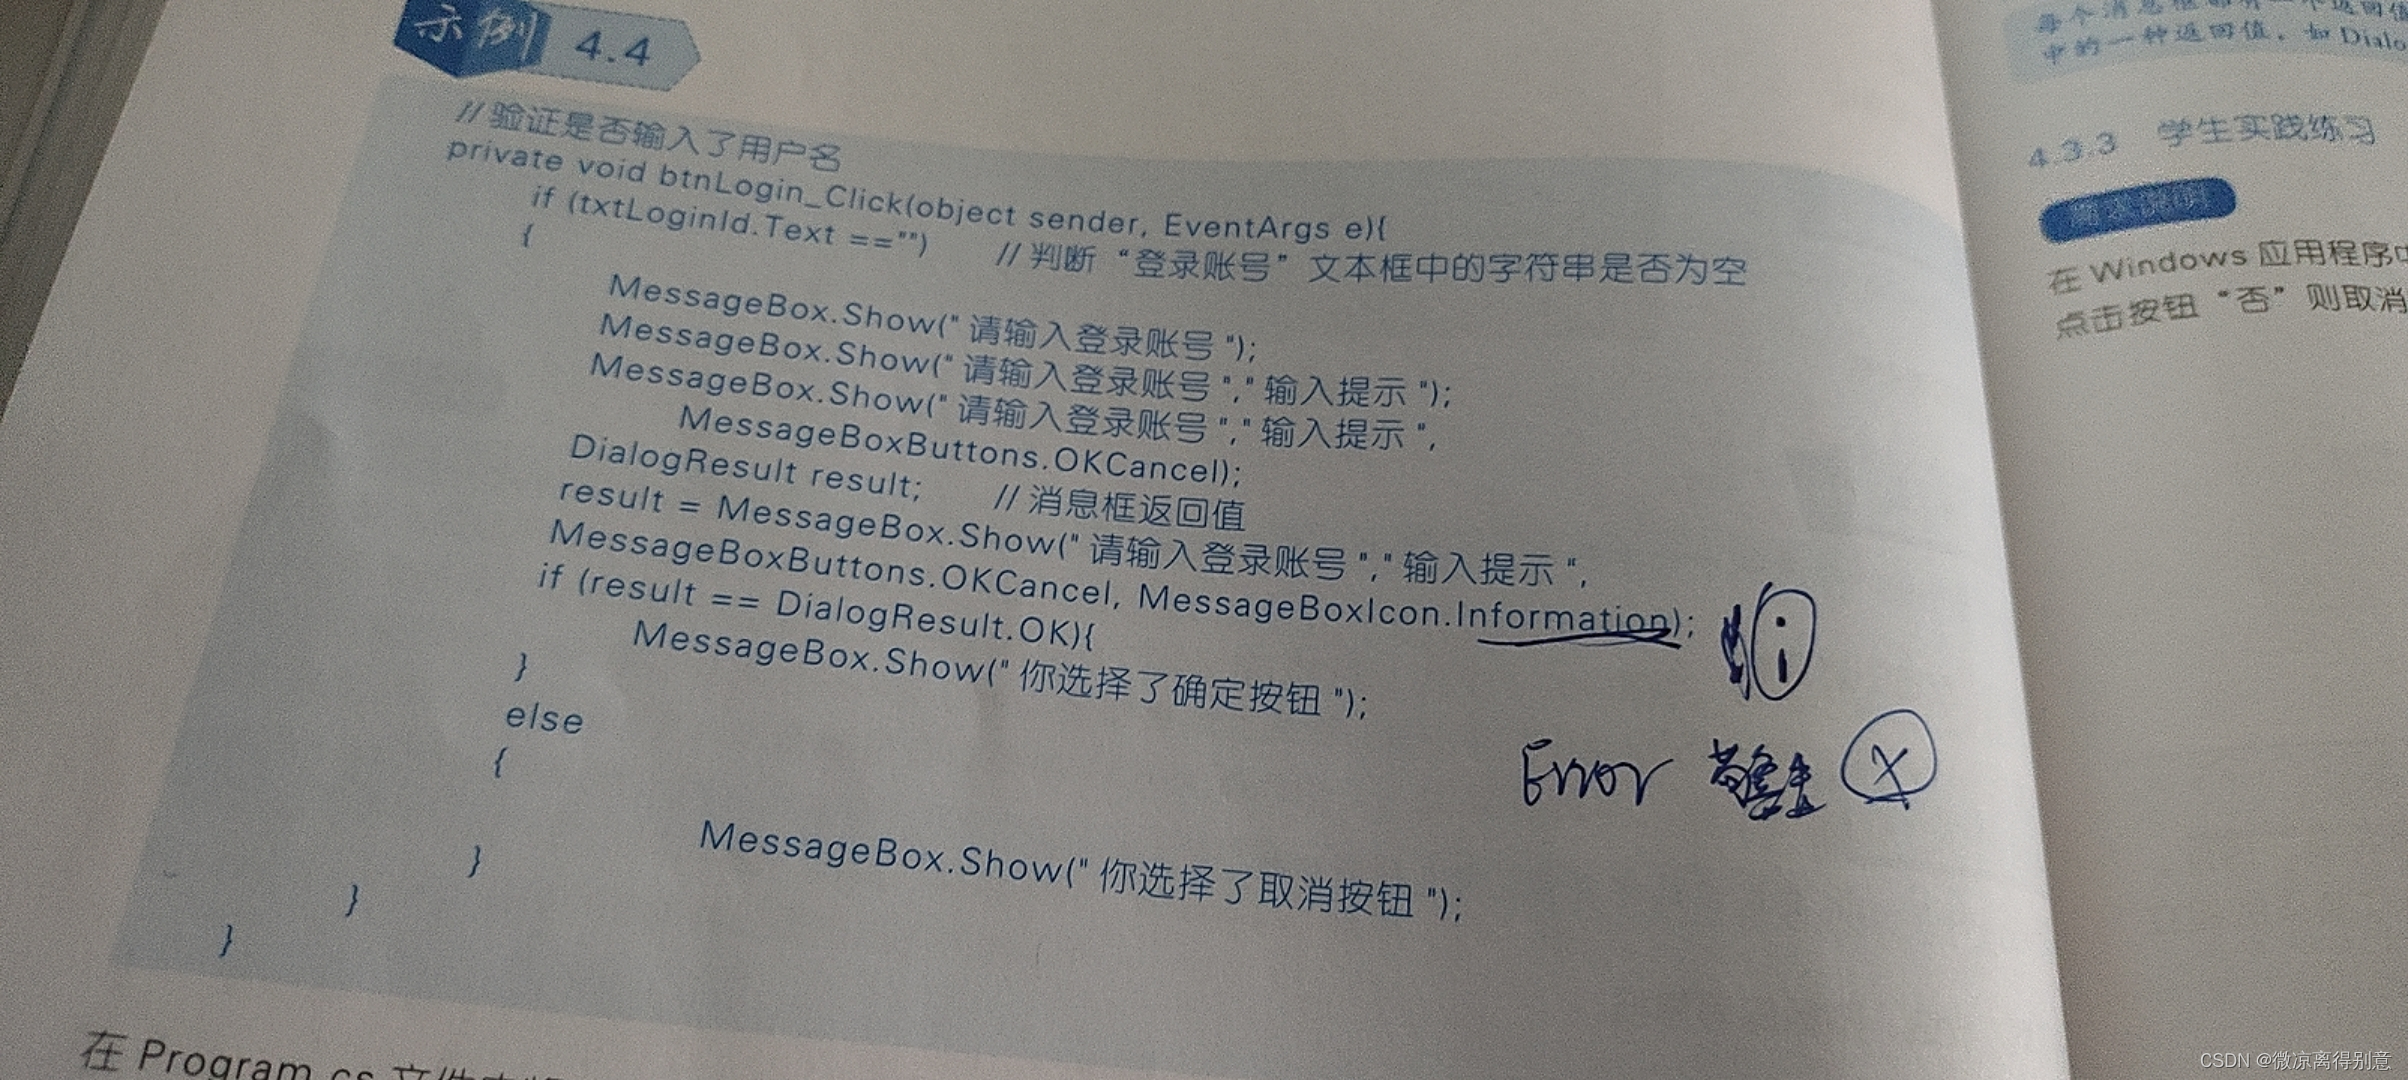 示例 4.4
//验证是否输入了用户名
private void btnLogin_Click(object sender, EventArgs e){
if (txtLoginId.Text =="") //判断“登录账号”文本框中的字符串是否为空
{
MessageBox.Show("请输入登录账号");
MessageBox.Show("请输入登录账号","输入提示");
MessageBox.Show("请输入登录账号","输入提示",
MessageBoxButtons.OKCancel);
DialogResult result; //消息框返回值
result = MessageBox.Show("请输入登录账号","输入提示",
MessageBoxButtons.OKCancel, MessageBoxIcon.Information);
if (result == DialogResult.OK){
MessageBox.Show("你选择了确定按钮");
}
else
{
MessageBox.Show("你选择了取消按钮");
}
}
}
Error
X
在 Program.cs 文件
中的一种返回值，如 Dialo
4.3.3 学生实践练习
在 Windows 应用程序中
点击按钮“否”则取消
CSDN @微凉离得别意